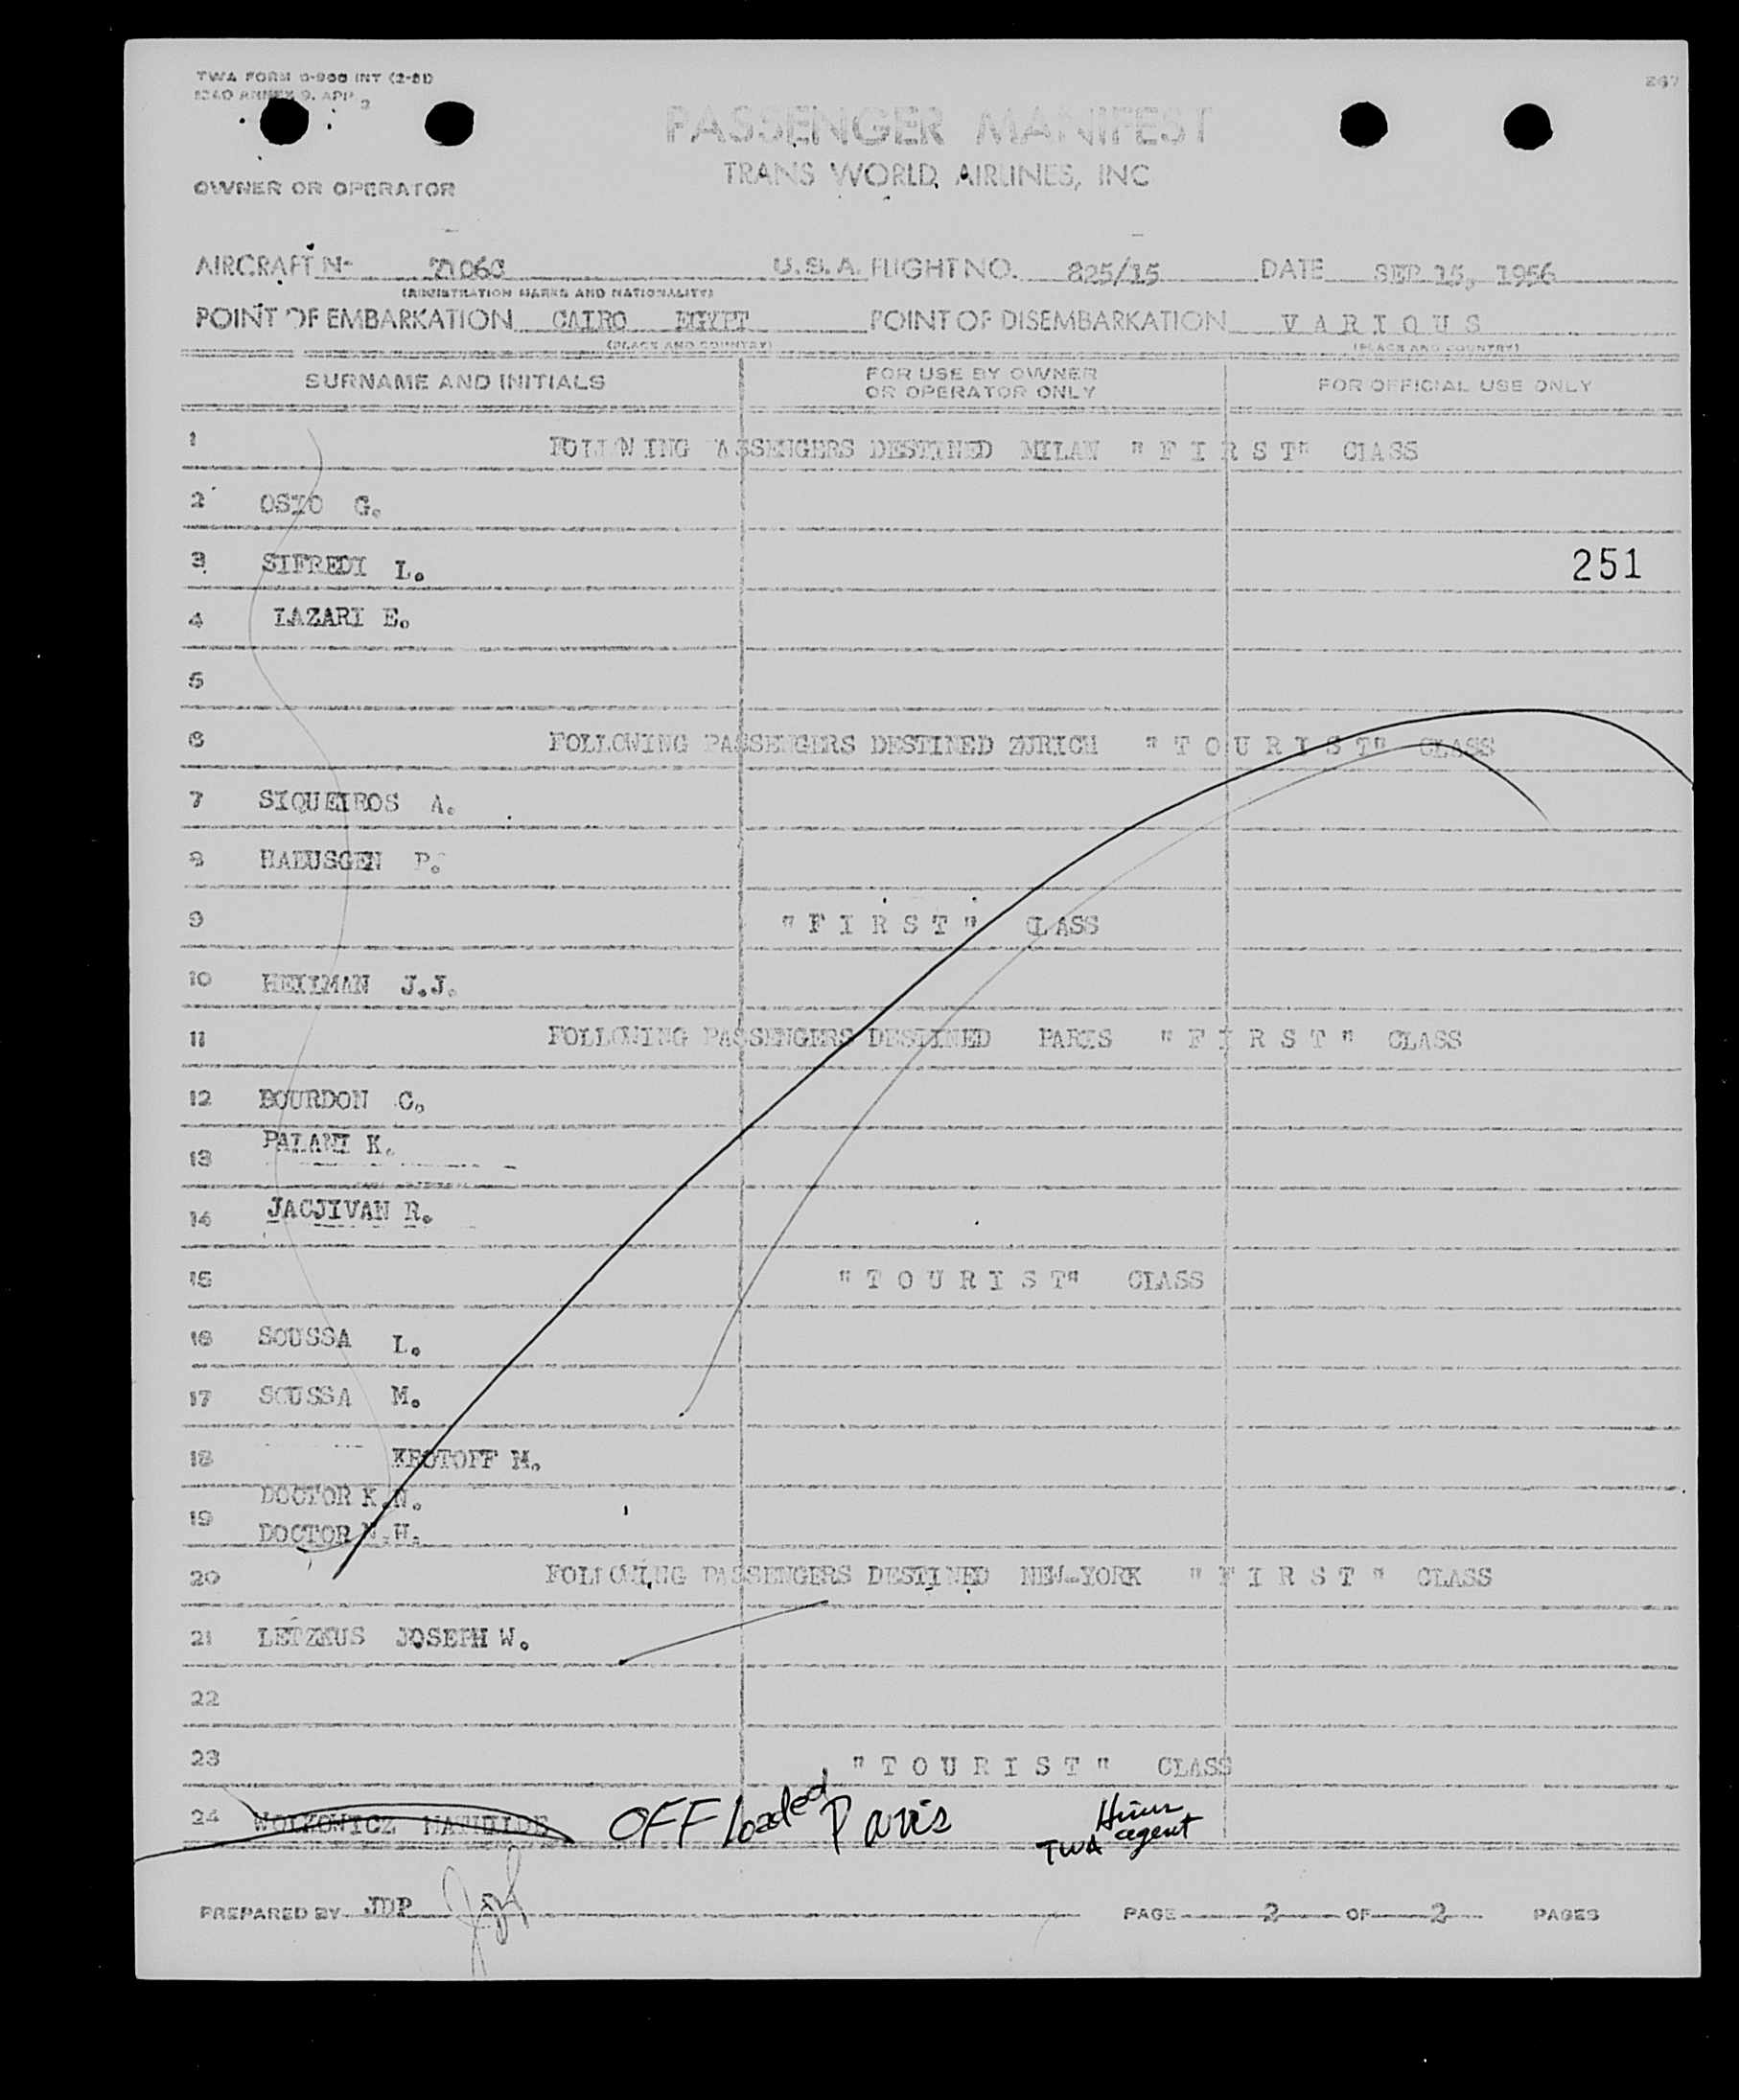 TWA FORM
267
PASSENGER MANIFEST
TRANS WORLD AIRLINES, INC
OWNER OR OPERATOR
AIRCRAFT N- U.S.A. FLIGHT NO. 825/15 DATE SEP 15, 1956
(REGISTRATION MARKS AND NATIONALITY)
POINT OF EMBARKATION CAIRO EGYPT POINT OF DISEMBARKATION V A R I O U S
(PLACE AND COUNTRY) (PLACE AND COUNTRY)
SURNAME AND INITIALS FOR USE BY OWNER OR OPERATOR ONLY FOR OFFICIAL USE ONLY
1 FOLLOWING PASSENGERS DESTINED MILAN " F I R S T" CLASS
2 OSIO G.
3 SIFREDI L. 251
4 LAZARI E.
5
6 FOLLOWING PASSENGERS DESTINED ZURICH " T O U R I S T" CLASS
7 SIQUEIROS A.
8 HAEUSGEN P.
9 " F I R S T " CLASS
10 HEILMAN J.J.
11 FOLLOWING PASSENGERS DESTINED PARIS " F I R S T " CLASS
12 BOURDON C.
13 PALANI K.
14 JACJIVAN R.
15 " T O U R I S T" CLASS
16 SOUSSA L.
17 SOUSSA M.
18 KROTOFF M.
DOCTOR K.N.
19
DOCTOR N.H.
20 FOLLOWING PASSENGERS DESTINED NEW-YORK " F I R S T " CLASS
21 LETZKUS JOSEPH W.
22
23 " T O U R I S T " CLASS
24 WOLKOWICZ MATHILDE OFF loaded Paris
TWA agent
PREPARED BY JDP PAGE 2 OF 2 PAGES